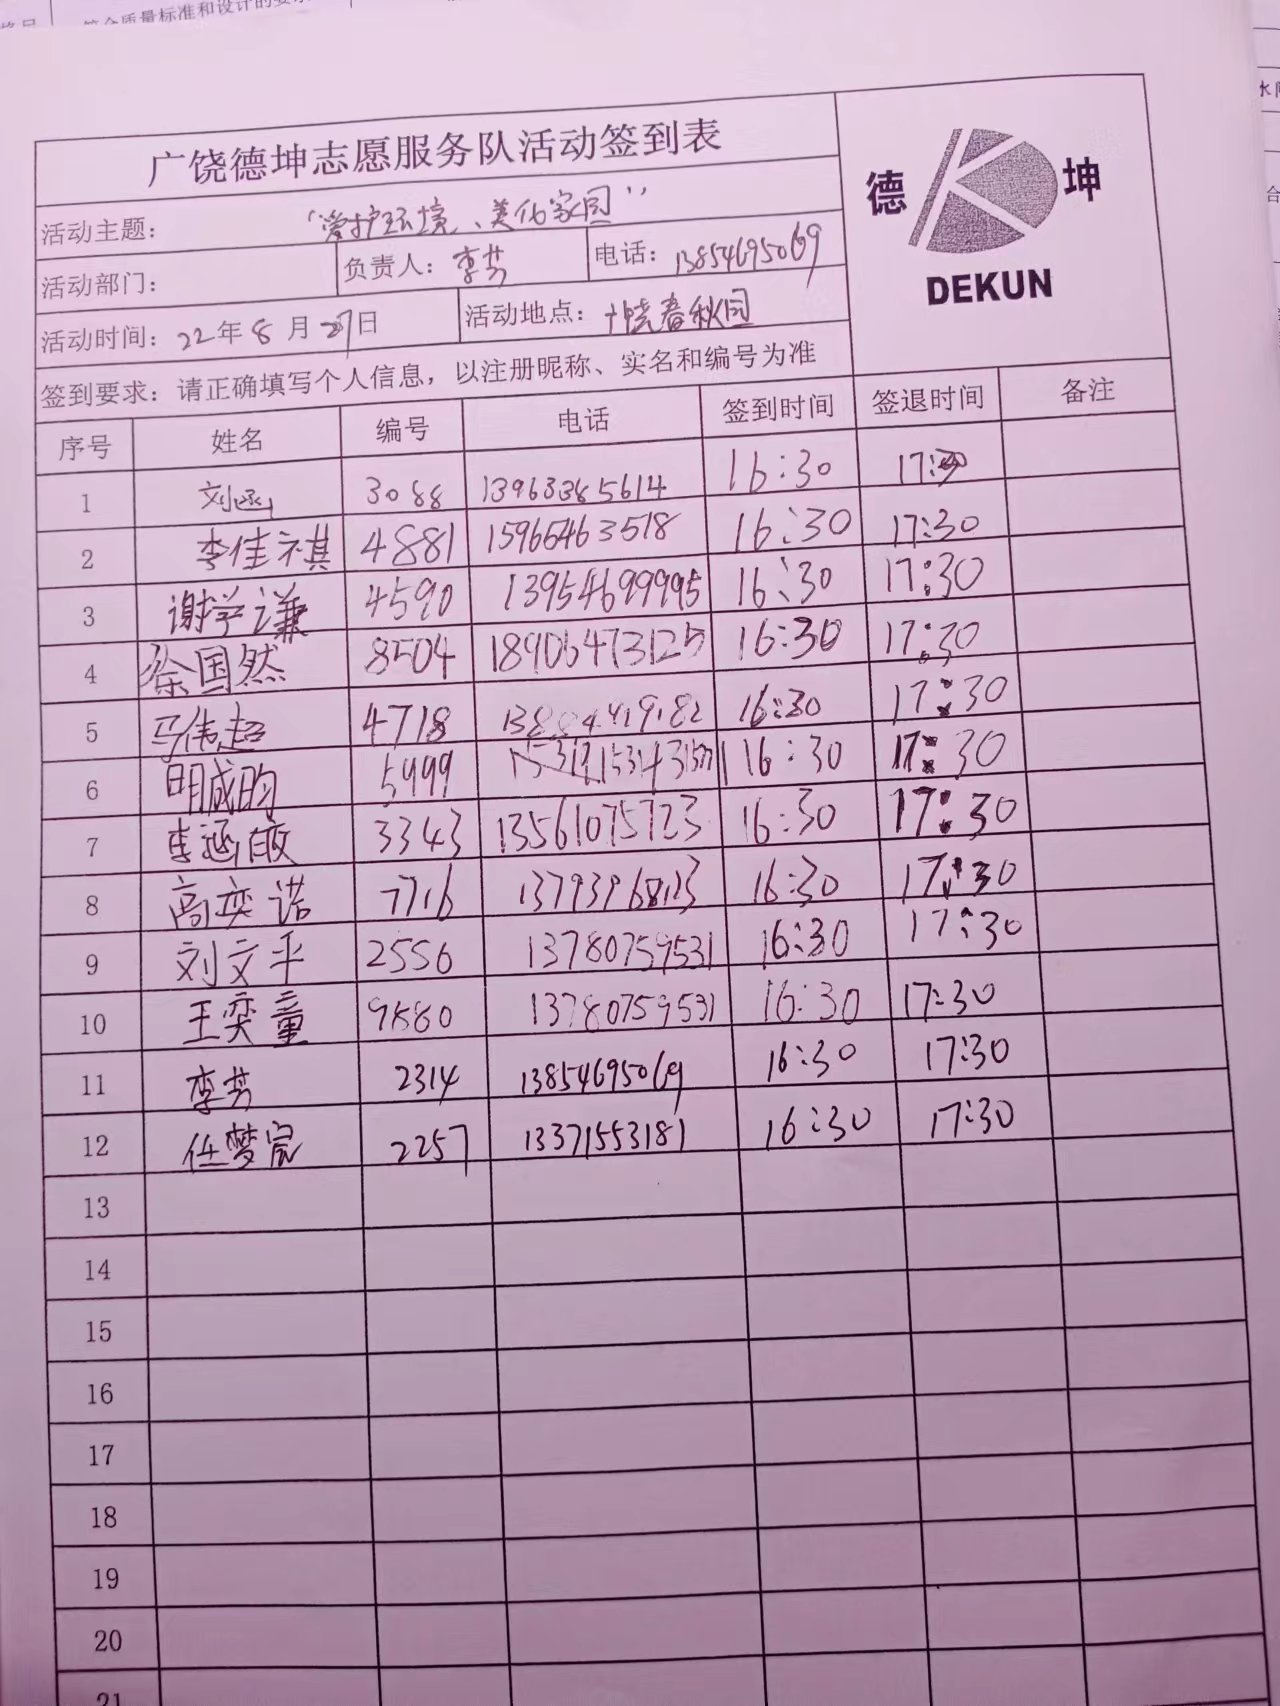 符合质量标准和设计的要求
广饶德坤志愿服务队活动签到表
德 坤
DEKUN
活动主题： "爱护环境、美化家园"
活动部门： 负责人：李芳 电话：13854695069
活动时间：22年8月27日 活动地点：广饶春秋园
签到要求：请正确填写个人信息，以注册昵称、实名和编号为准
序号 姓名 编号 电话 签到时间 签退时间 备注
1 刘涵 3088 13963385614 16:30 17:30
2 李佳祺 4881 15965463518 16:30 17:30
3 谢学谦 4590 13954699995 16:30 17:30
4 徐国然 8504 18906473125 16:30 17:30
5 马伟超 4718 13884919182 16:30 17:30
6 明成昀 5999 16:30 17:30
7 李涵 3343 13561075723 16:30 17:30
8 高奕诺 7716 13793968123 16:30 17:30
9 刘文平 2556 13780759531 16:30 17:30
10 王奕童 9880 13780759531 16:30 17:30
11 李芳 2314 13854695069 16:30 17:30
12 任梦宸 2257 13371553181 16:30 17:30
13
14
15
16
17
18
19
20
21